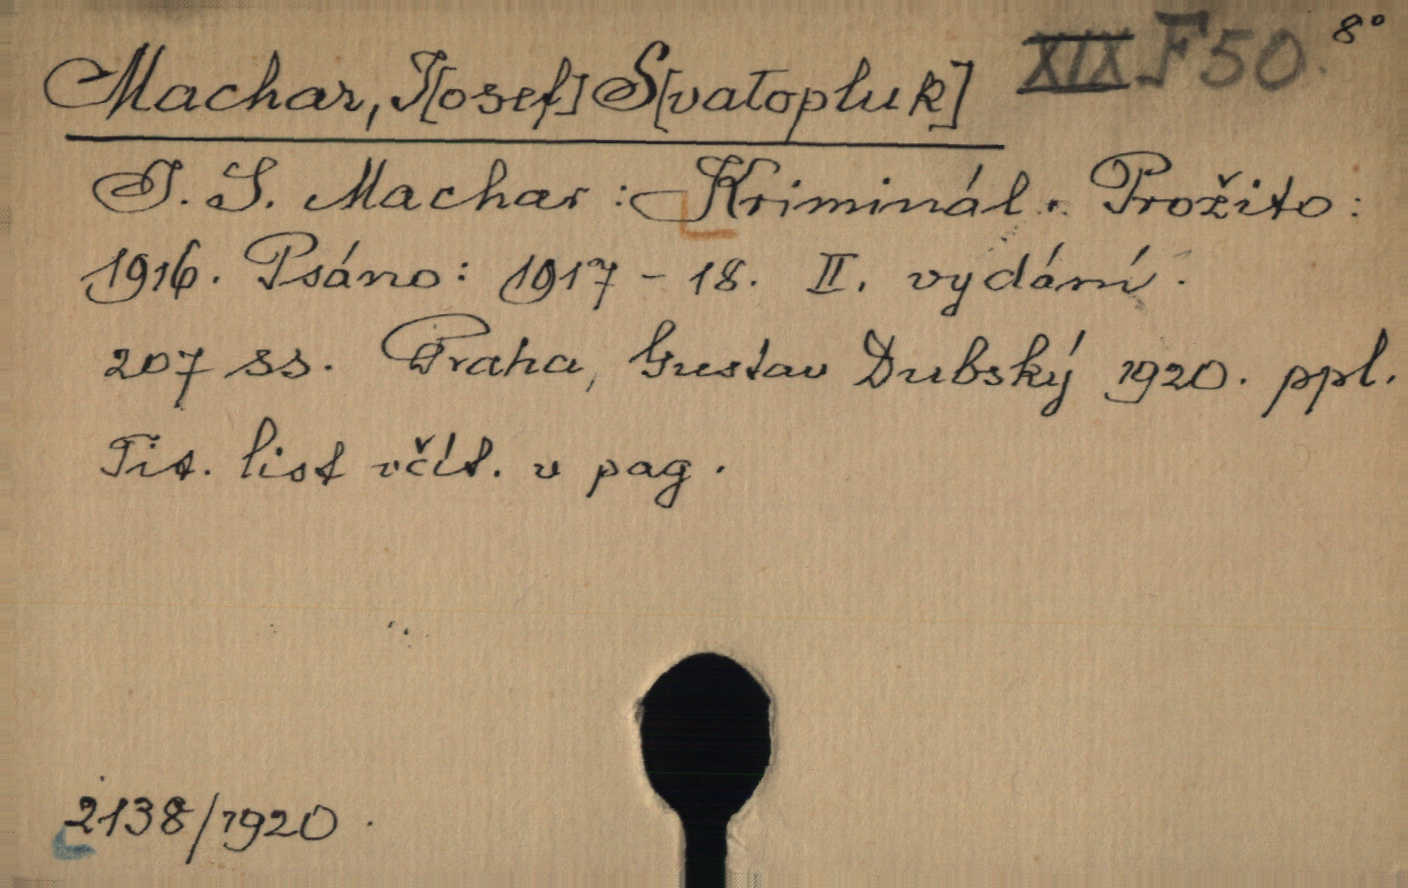 XIX F 50. 8°
Machar, J[osef] S[vatopluk]
J. S. Machar: Kriminál. Prožito:
1916. Psáno: 1917 - 18. II. vydání.
207 ss. Praha, Gustav Dubský 1920. ppl.
Tit. list včít. v pag.
2138/1920.